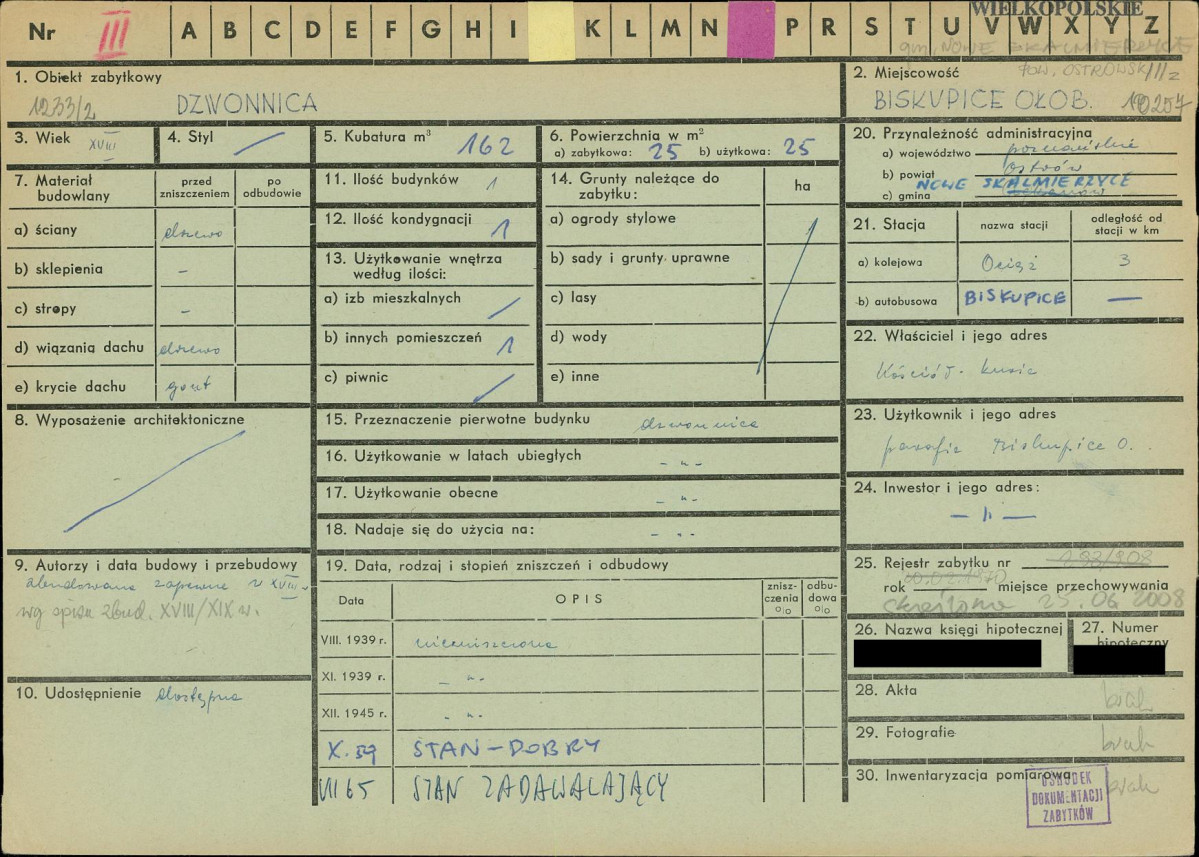 WIELKOPOLSKIE
Nr III A B C D E F G H I K L M N P R S T U V W X Y Z
gm. NOWE SKALMIERZYCE
pow. OSTROWSKI
1. Obiekt zabytkowy
1233/2 DZWONNICA
2. Miejscowość
BISKUPICE OŁOB.
3. Wiek XVIII
4. Styl
5. Kubatura m³ 162
6. Powierzchnia w m²
a) zabytkowa: 25 b) użytkowa: 25
7. Materiał budowlany
przed zniszczeniem
po odbudowie
a) ściany drzewo
b) sklepienia –
c) stropy –
d) wiązania dachu drzewo
e) krycie dachu gont
8. Wyposażenie architektoniczne
9. Autorzy i data budowy i przebudowy
zbudowana zapewne w XVIII w.
wg spisu zbud. XVIII/XIX w.
10. Udostępnienie dostępna
11. Ilość budynków 1
12. Ilość kondygnacji 1
13. Użytkowanie wnętrza
według ilości:
a) izb mieszkalnych
b) innych pomieszczeń 1
c) piwnic
14. Grunty należące do
zabytku:
ha
a) ogrody stylowe
b) sady i grunty uprawne
c) lasy
d) wody
e) inne
15. Przeznaczenie pierwotne budynku dzwonnica
16. Użytkowanie w latach ubiegłych - " -
17. Użytkowanie obecne - " -
18. Nadaje się do użycia na: - " -
19. Data, rodzaj i stopień zniszczeń i odbudowy
Data
OPIS
znisz-
czenia
o|o
odbu-
dowa
o|o
VIII. 1939 r. niezniszczona
XI. 1939 r. - " -
XII. 1945 r. - " -
X. 59 STAN - DOBRY
VII 65 STAN ZADAWALAJĄCY
20. Przynależność administracyjna
a) województwo poznańskie
b) powiat Ostrów
NOWE SKALMIERZYCE
c) gmina
21. Stacja
nazwa stacji
odległość od
stacji w km
a) kolejowa Ociąż 3
b) autobusowa BISKUPICE —
22. Właściciel i jego adres
Kościół
23. Użytkownik i jego adres
parafia Biskupice O.
24. Inwestor i jego adres:
— " —
25. Rejestr zabytku nr
rok miejsce przechowywania
skreślona 25.06.2008
26. Nazwa księgi hipotecznej
27. Numer
hipoteczny
28. Akta brak
29. Fotografie brak
30. Inwentaryzacja pomiarowa brak
OŚRODEK
DOKUMENTACJI
ZABYTKÓW